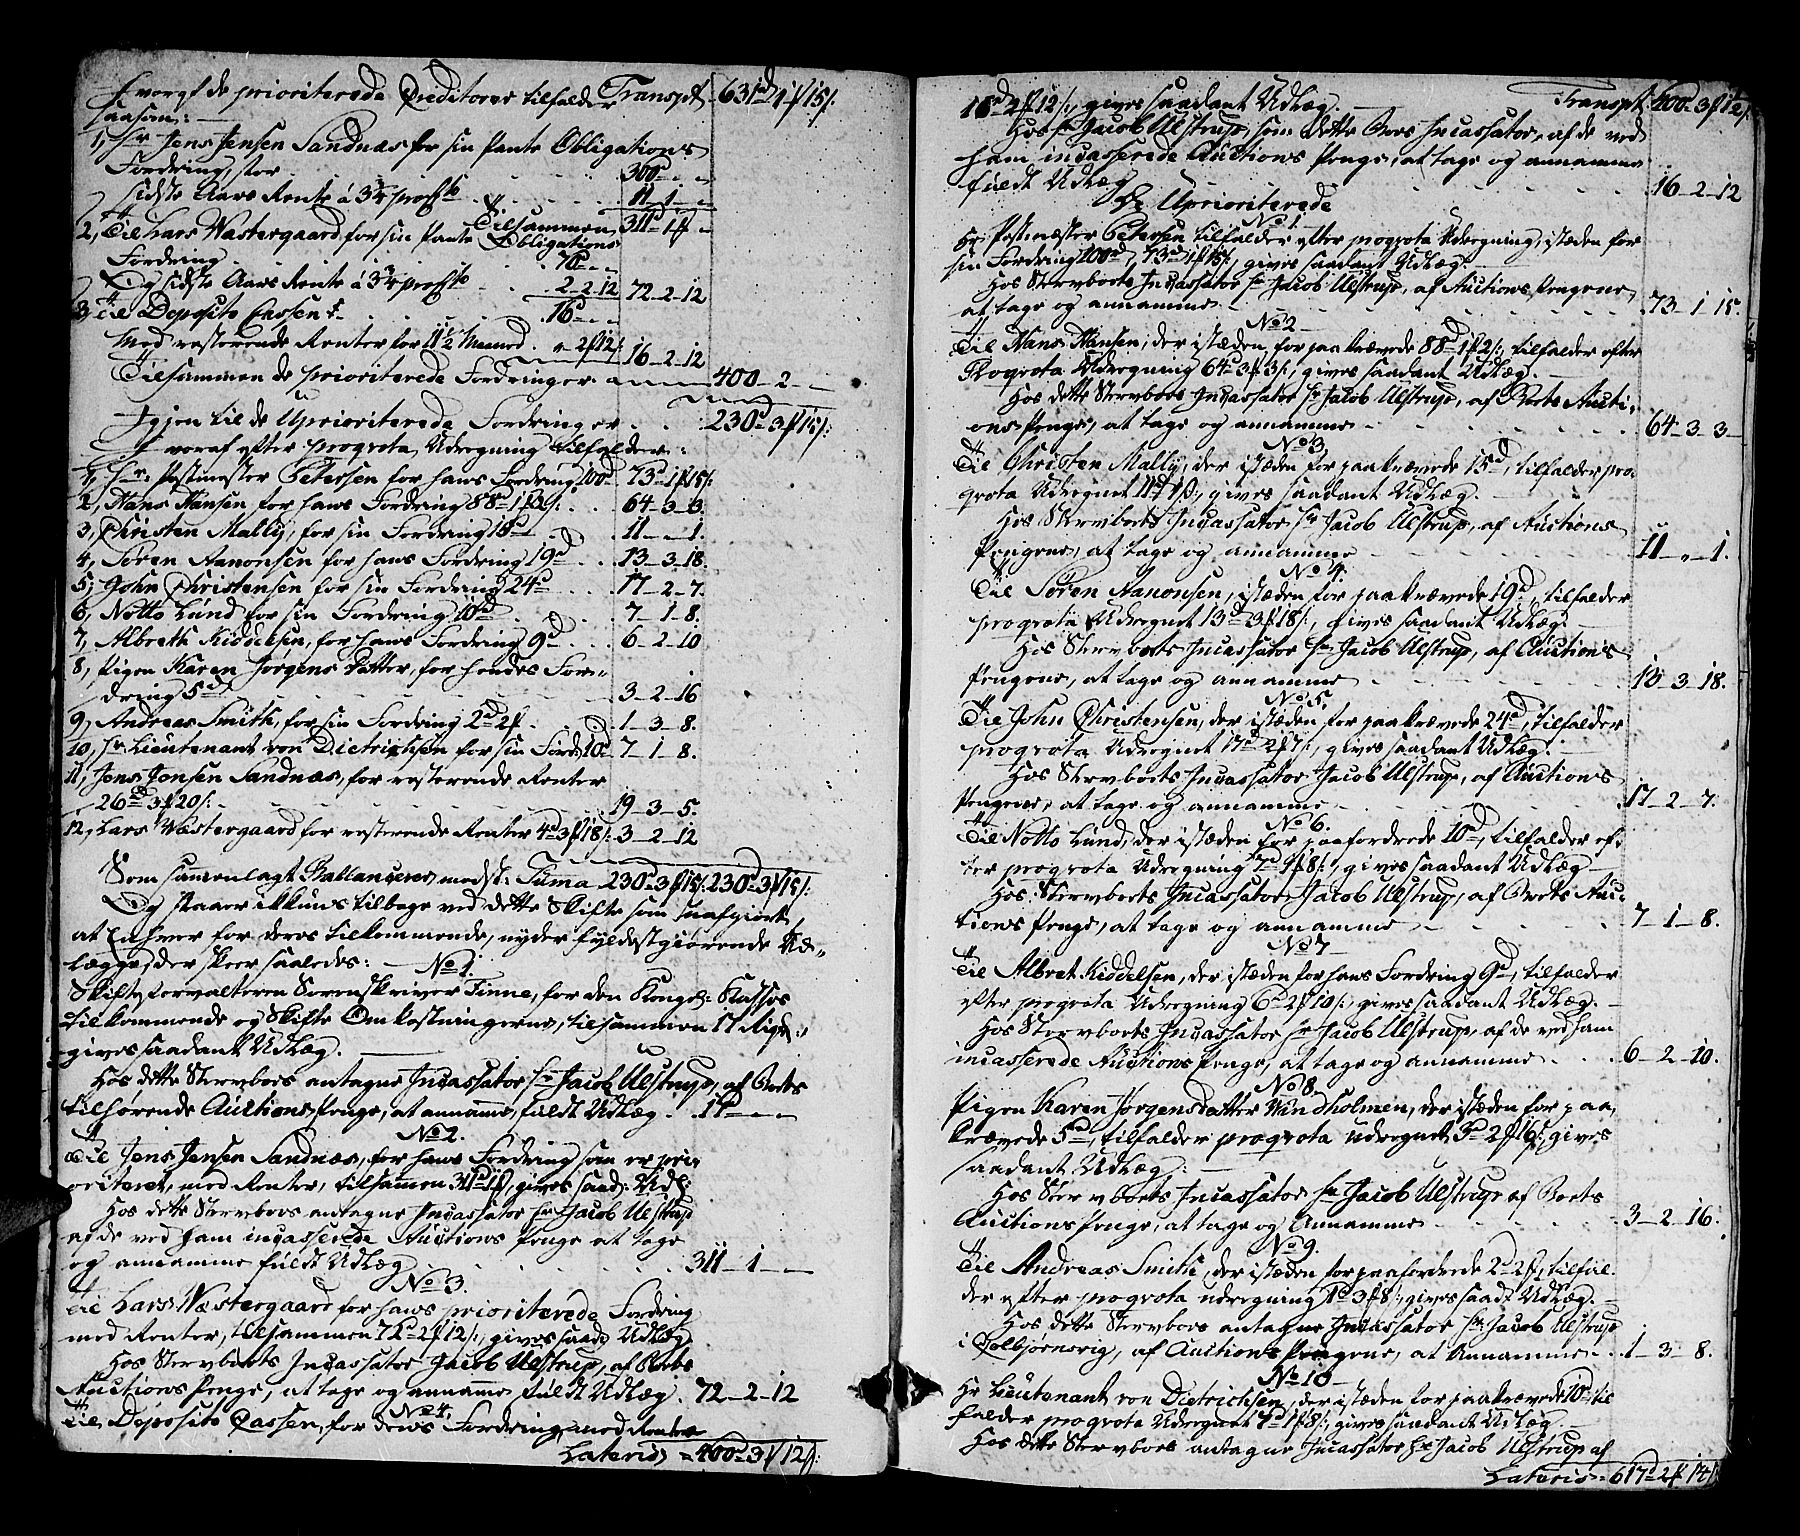 hvoraf de prioriterede Creditorer tilfalder Transpt 631d 4f 15s:
saasom:
1, Hr Jens Jensen Sandnæs for sin Pante Obligations
Fordring, stor 300d - -
sidste Aars Rente á 3¾ proCto 11 - 1 -
Tilsammen 311d 1f -
2, Til Lars Wæstergaard for sin Pante Obligations
Fordring 70d - -
Og sidste Aars Rente á 3¾ proCto 2 - 2 - 12 72 - 2 - 12
3, Til Deposito Cassen 16d - -
Med resterende Renter for 11½ Maaned - 2f 12s: 16 - 2 - 12
Tilsammen de prioriterede Fordringer 400 - 2 -
Igjen til de Uprioriterede Fordringer 230d 3f 15s:
hvoraf efter progrota Udregning tilfalder:
1, Hr: Postmester Petersen for hans Fordring 100d 73d 1f 15s:
2, Hans Hansen for hans Fordring 88d 1f 2s: 64 - 3 - 3.
3, Christen Mally, for sin Fordring 15d 11 - „ - 1.
4, Søren Aanonsen for hans Fordring 19d 13 - 3 - 18.
5, John Christensen for sin Fordring 24d 17 - 2 - 7.
6, Notto Lund for sin Fordring 10d 7 - 1 - 8.
7, Albreth Kiddelsen, for hans Fordring 9d 6 - 2 - 10
8, Pigen Karen Jørgens Datter, for hendes For-
dring 5d 3 - 2 - 16
9, Andreas Smith, for sin Fordring 2d 2f 1 - 3 - 8.
10, Hr Lieutenant von Dietrichsen for sin Fordr: 10d 7 - 1 - 8.
11, Jens Jensen Sandnæs, for resterende Renter
26d 3f 20s: 19 - 3 - 5.
12, Lars Wæstergaard for resterende Renter 4d 3f 18s: 3 - 2 - 12
Som samenlagt Ballancerer medst: Summa 230d 3f 15s: 230d 3f 15s:
Og staaer ikkuns tilbage ved dette Skifte som snafgiort,
at Enhver for deres tilkommende, nyder fyldestgiørende Ud-
lægge, der skeer saaledes: No 1.
Skifteforvalteren Sorenskriver Finne, for den Kongel: Kasses
tilkommende og Skifte Omkostningerne, tilsammen 17 Rigsd:
gives saadant Udlæg.
Hos dette Stervboes antagne Incassator Hr Jacob Ulstrup, af Boets
tilhørende Auctions Penge, at annamme, fuldt Udlæg. 17d - -
No 2.
Til Jens Jensen Sandnæs, for hans Fordring som er pri-
oriteret, med Renter, tilsammen 311d 1f, gives saad: Udl:
Hos dette Stervboes antagne Incassator Hr Jacob Ulstrup
af de ved ham incasserede Auctions Penge at tage
og annamme fuldt Udlæg 311 - 1 -
No 3.
Til Lars Wæstergaard for hans prioriterede Fordring
med Renter, tilsammen 72d 2f 12s:, gives saadt Udlæg
Hos Stervboets Incassator Jacob Ulstrup, af Boets
Auctions Penge, at tage og annamme fuldt Udlæg. 72 - 2 - 12
No 4.
Til Deposito Cassen, for dens Fordring, med Renter
Lateris = 400d 3f 12s:
Transpt 400 - 3f 12s:
18d 2f 12s:, gives saadant Udlæg.
Hos Hr Jacob Ulstrup, som dette Boes Incassator, af de ved
ham incasserede Auctions Penge, at tage og annamme
fuldt Udlæg 16 - 2 - 12
De Uprioriterede
No 1.
Hr Postmester Petersen tilfalder efter progrota Udregning, isteden for
sin Fordring 100d, 73d 1f 15s:, gives saadant Udlæg.
Hos Stervboets Incassator Hr Jacob Ulstrup, af Auctions Pengene,
at tage og annamme 73 - 1 - 15.
No 2
Til Hans Hansen, der isteden for paakrævede 88d 1f 2s:, tilfalder efter
Progrota Udregning 64d 3f 3s:, gives saadant Udlæg.
Hos dette Stervboes Incassator Hr Jacob Ulstrup, af Boets Aucti-
ons Penge, at tage og annamme 64 - 3 - 3 -
No 3
Til Christen Mally, der isteden for paakrævede 15d, tilfalder pro-
grota Udregnet 11d 1s:, gives saadant Udlæg.
Hos Stervboets Incassator Hr Jacob Ulstrup, af Auctions
Pengene, at tage og annamme 11 - „ - 1.
No 4.
Til Søren Aanonsen, isteden for paakrævede 19d, tilfalder
progrota Udregnet 13d 3f 18s:, gives saadant Udlæg.
Hos Stervboets Incassator Hr Jacob Ulstrup, af Auctions
Pengene, at tage og annamme 13 - 3 - 18.
No 5.
Til John Christensen, der isteden for paakrævede 24d, tilfalder
progrota Udregnet 17d 2f 7s:, gives saadant Udlæg.
Hos Stervboets Incassator Jacob Ulstrup, af Auctions
Pengene, at tage og annamme 17 - 2 - 7.
No 6.
Til Notto Lund, der isteden for paafordrede 10d, tilfalder ef-
ter progrota Udregning 7d 1f 8s:, gives saadant Udlæg
Hos Stervboets Incassator Jacob Ulstrup, af Boets Auc-
tions Penge, at tage og annamme 7 - 1 - 8.
No 7
Til Albret Kiddelsen, der isteden for hans Fordring 9d, tilfalder
efter progrota Udregning 6d 2f 10s:, gives saadant Udlæg.
Hos Stervboets Incassator Hr Jacob Ulstrup, af de ved ham
incasserede Auctions Penge, at tage og annamme 6 - 2 - 10.
No 8.
Pigen Karen Jørgensdatter Windholmen, der isteden for paa-
krævede 5d, tilfalder progrota udregnet 3d 2f 16s:, gives
saadant Udlæg:
Hos Stervboets Incassator Hr Jacob Ulstrup af Boets
Auctions Penge, at tage og Annamme 3 - 2 - 16.
No 9.
Til Andreas Smith, der isteden for paafordrede 2d 2f, tilfal-
der efter progrota udregning 1d 3f 8s:, gives saadt Udlæg.
Hos dette Stervboes antagne Incassator Hr Jacob Ulstrup
i Colbjørnsvig, af Auctions Pengene, at Annamme 1 - 3 - 8.
No 10
Hr Lieutenant von Dietrichsen, der isteden for paakrævede 10d til-
falder progrota Udregnet 7d 1f 8s:, gives saadant Udlæg.
Hos dette Stervboes antagne Incassator Hr Jacob Ulstrup af
Lateris = 617d 2f 14s: